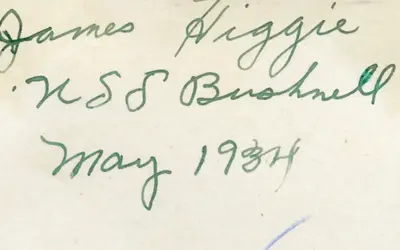 James Higgie
USS Bushnell
May 1934